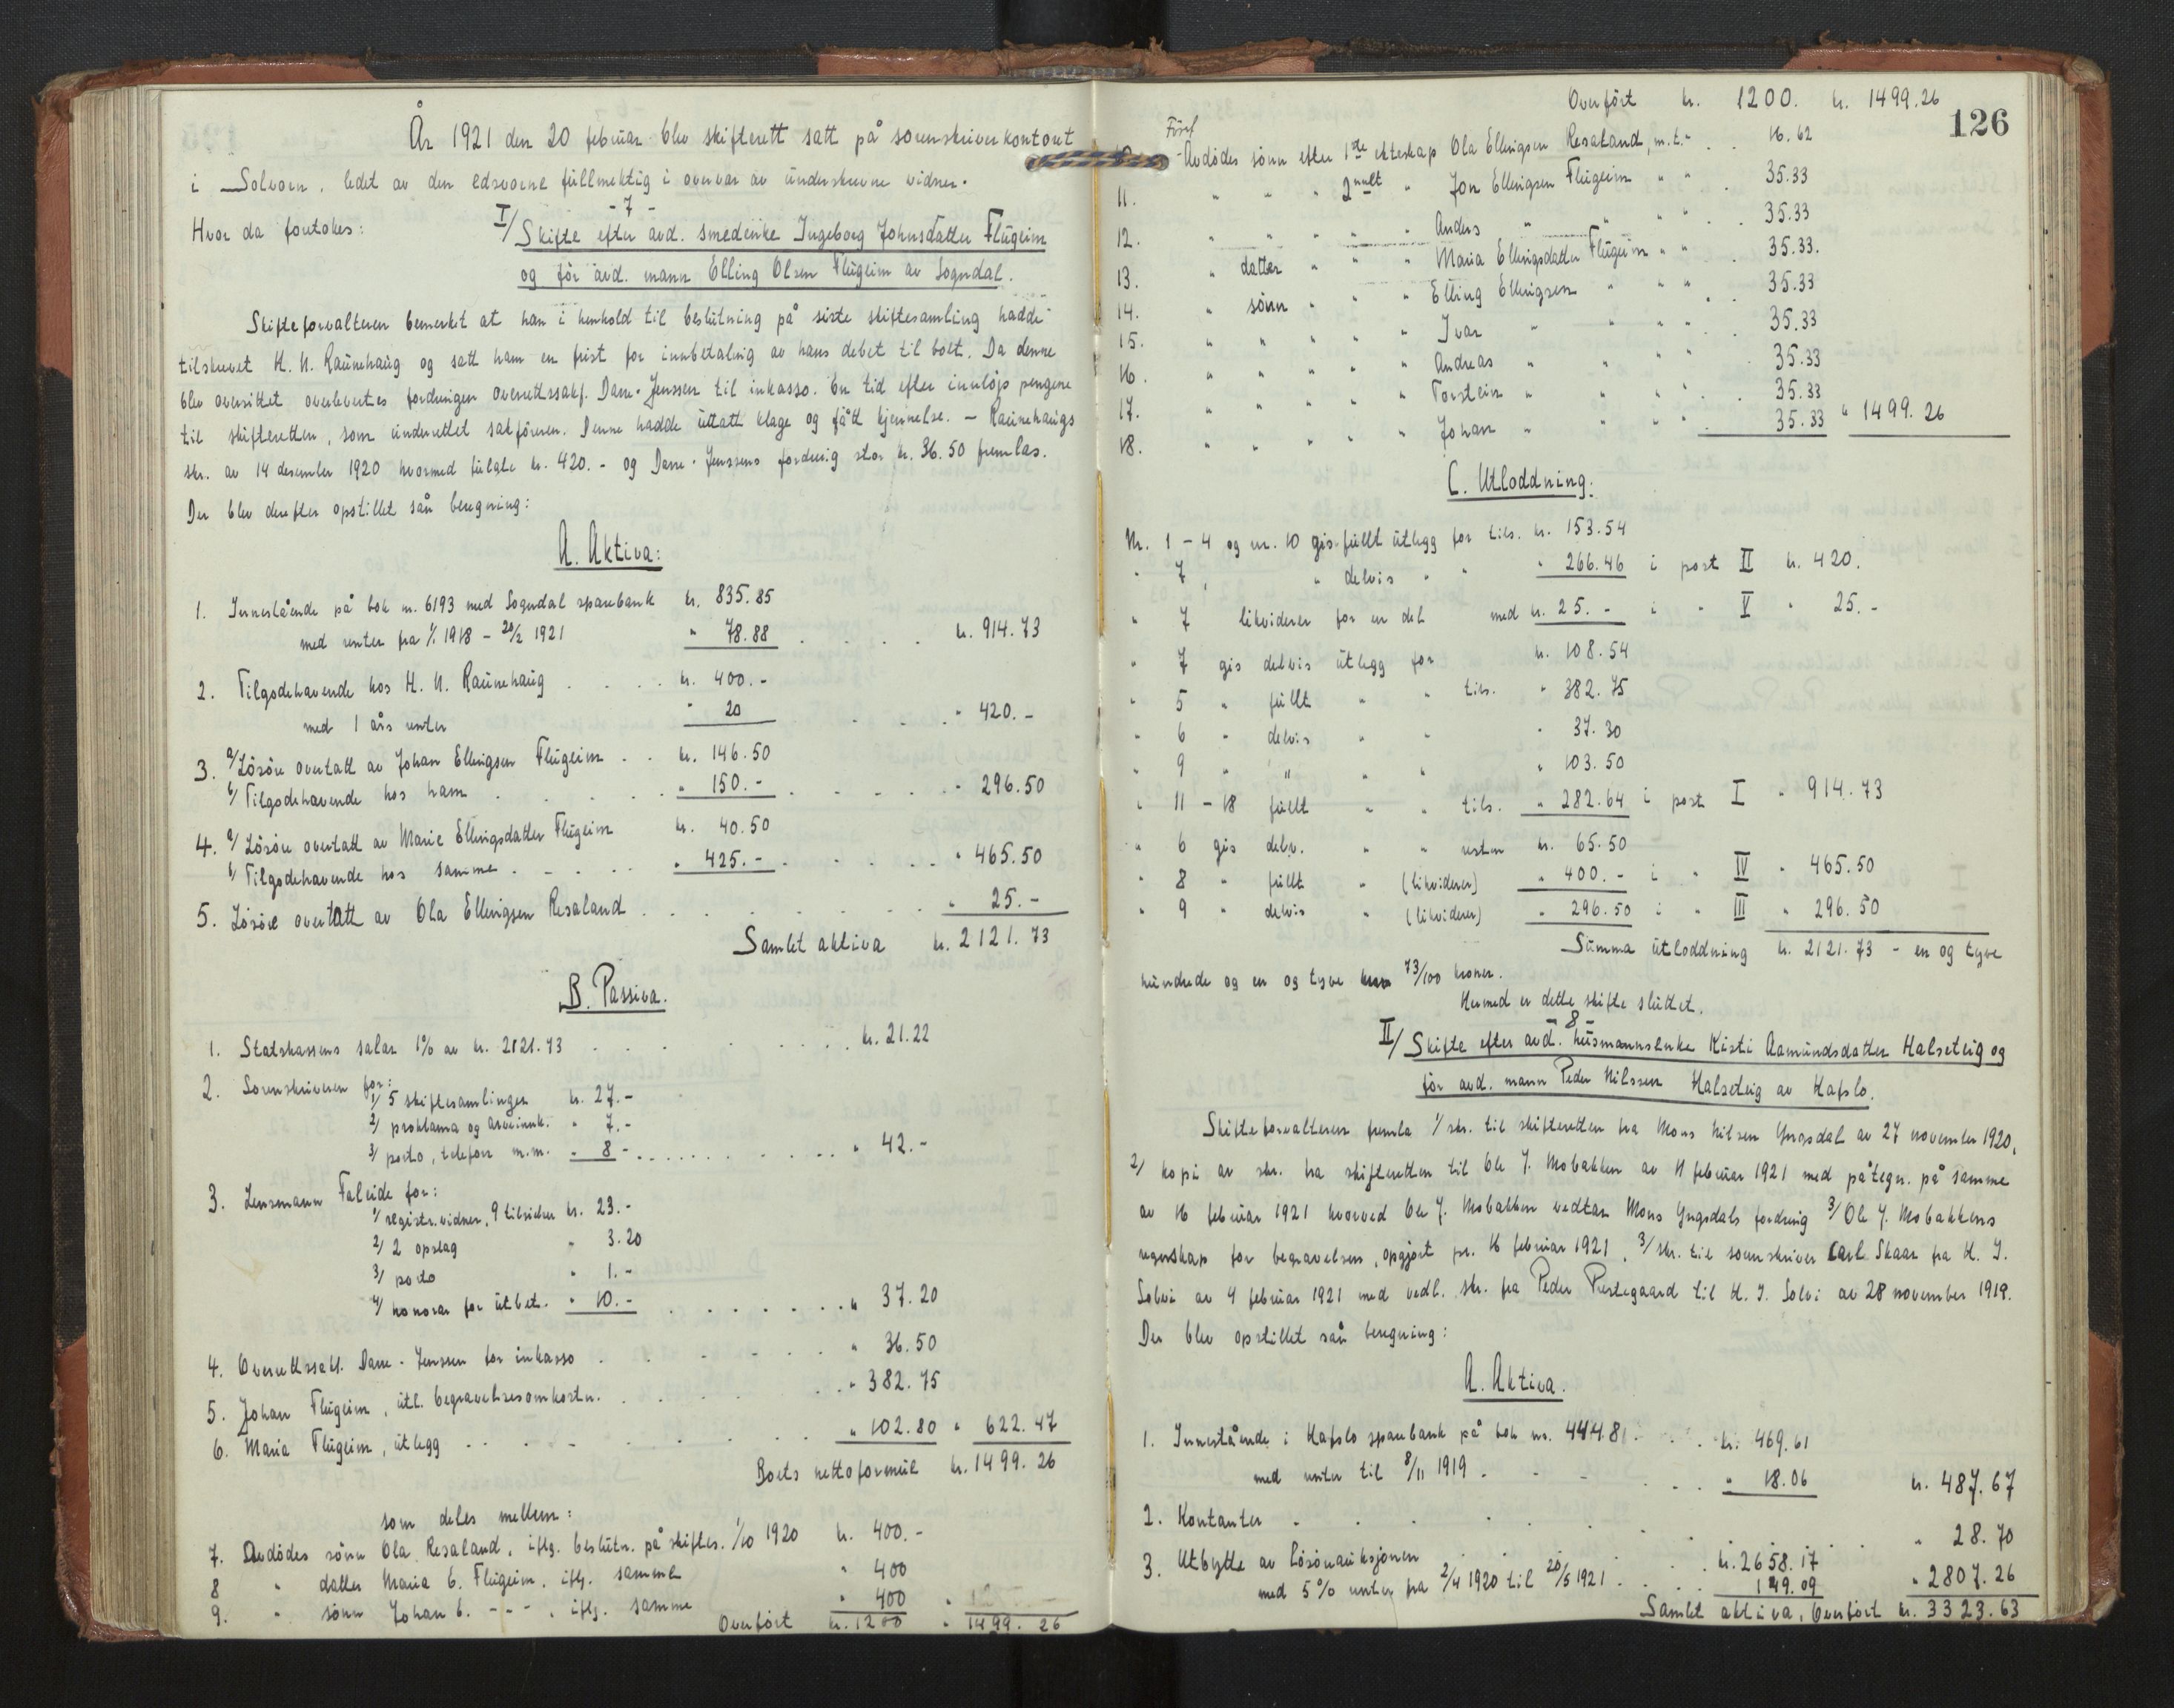 År 1921 den 20 februar blev skifterett satt på sorenskriverkontoret
i Solvorn, ledet av den edsvorne fullmektig i overvær av underskrevne vidner.
- 7 -
Hvor da foretokes: I/ Skifte efter avd. smedenke Ingeborg Johnsdatter Flugeim
og før avd. mann Elling Olsen Flugeim av Sogndal.
Skifteforvalteren bemerket at han i henhold til beslutning på siste skiftesamling hadde
tilskrevet H. N. Raunehaug og satt ham en frist for innbetaling av hans debet til boet. Da denne
blev oversittet overlevertes fordringen overrettssakf. Dane-Jenssen til inkasso. En tid efter innløp pengene
til skifteretten, som underrettet sakføreren. Denne hadde uttatt klage og fått kjennelse. – Raunehaugs
skr. av 14 desember 1920 hvormed fulgte kr. 420.- og Dane-Jenssens fordring stor kr. 36.50 fremlas.
Der blev derefter opstillet sån beregning:
A. Aktiva:
1. Innestående på bok nr. 6193 med Sogndal sparebank kr. 835.85
med renter fra 1/1 1918 - 20/2 1921 " 78.88 . . . kr. 914.73
2. Tilgodehavende hos H. N. Raunehaug . . . . kr. 400.-
med 1 års renter " 20 . . . " 420.-
3. a/ Løsøre overtatt av Johan Ellingsen Flugeim . . kr. 146.50
b/ Tilgodehavende hos ham . . . . . " 150.- . . . . . " 296.50
4. a/ Løsøre overtatt av Marie Ellingsdatter Flugeim kr. 40.50
b/ Tilgodehavende hos samme . . . . . " 425.- . . . . . " 465.50
5. Løsøre overtatt av Ola Ellingsen Resaland . . . . . . . . . " 25.-
Samlet aktiva kr. 2121.73
B. Passiva.
1. Statskassens salær 1% av kr. 2121.73 . . . . . . . . kr. 21.22
2. Sorenskriveren for:
1/ 5 skiftesamlinger kr. 27.-
2/ proklama og arveinnk. " 7.-
3/ porto, telefon m.m. " 8 - . . . . . . . . . . " 42.-
3. Lensmann Faleide for:
1/ registr.vidner, 9 tilsider kr. 23.-
2/ 2 opslag " 3.20
3/ porto " 1.-
4/ honorar for utbet. " 10.- . . . . . . . " 37.20
4. Overrettssakf. Dane-Jenssen for inkasso . . . . . . . " 36.50
5. Johan Flugeim, utl. begravelsesomkostn. . . . . . . " 382.75
6. Maria Flugeim, utlegg . . . . . . . . . " 102.80 " 622.47
Boets nettoformue kr. 1499.26
som deles mellem:
7. Avdødes sønn Ola Resaland, iflg. beslutn. på skiftes. 1/10 1920 kr. 400.-
8 " datter Maria E. Flugeim, iflg. samme " 400
9. " sønn Johan E. - - - , iflg. samme " 400
Overført kr. 1200 " 1499.26
126
Overført kr. 1200. kr. 1499.26
Avdødes sønn efter 1ste ekteskap Ola Ellingsen Resaland, m.t. - . . 16.62
11. " " " 2net " Jon Ellingsen Flugeim " " . 35.33
12. " " " " " Anders " " " " . 35.33
13. " datter " " " Maria Ellingsdatter Flugeim " " . 35.33.
14. " sønn " " " Elling Ellingsen " " " . 35.33
15. " " " " " Ivar " " " " . 35.33
16. " " " " " Andreas " " " " . 35.33
17. " " " " " Torstein " " " " . 35.33
18. " " " " " Johan " " " " . 35.33 " 1499.26
C. Utloddning.
Nr. 1 - 4 og nr. 10 gis fullt utlegg for tils. kr. 153.54
" 7 " delvis " " " 266.46 i post II kr. 420.
" 7 likviderer for en del med kr. 25.- i " V " 25.-
" 7 gis delvis utlegg for kr. 108.54
" 5 " fullt " " tils. " 382.75
" 6 " delvis " " " 37.30
" 9 " " " " " 103.50
" 11 - 18 fullt " " tils. " 282.64 i post I " 914.73
" 6 gis delv. " " resten kr. 65.50
" 8 " fullt " (likviderer) " 400.- i " IV " 465.50
" 9 " delvis " (likviderer) " 296.50 i " III " 296.50
Summa utloddning kr. 2121.73 - en og tyve
hundrede og en og tyve 73/100 kroner.
Hermed er dette skifte sluttet.
- 8 -
II/ Skifte efter avd. husmannsenke Kirsti Aamundsdatter Halseteig og
før avd. mann Peder Nilssen Halseteig av Hafslo.
Skifteforvalteren fremla 1/ skr. til skifteretten fra Mons Nilsen Yngsdal av 27 november 1920,
2/ kopi av skr. fra skifteretten til Ole J. Mobakken av 11 februar 1921 med påtegn. på samme
av 16 februar 1921 hvorved Ole J. Mobakken vedtar Mons Yngsdals fordring 3/ Ole J. Mobakkens
regnskap for begravelsen, opgjort pr. 16 februar 1921, 3/ skr. til sorenskriver Carl Skaar fra H. J.
Solvi av 4 februar 1921 med vedl. skr. fra Peder Prestegaard til H. J. Solvi av 28 november 1919.
Der blev opstillet sån beregning:
A. Aktiva.
1. Innestående i Hafslo sparebank på bok nr. 4448 . . . kr. 469.61
med renter til 8/11 1919 . . . . . . " 18.06 kr. 487.67
2. Kontanter . . . . . . . . . . " 28.70
3. Utbytte av løsøreauksjonen . . . . . kr. 2658.17
med 5% renter fra 2/4 1920 til 20/5 1921 . . . 149.09 " 2807.26
Samlet aktiva, Overført kr. 3323.63